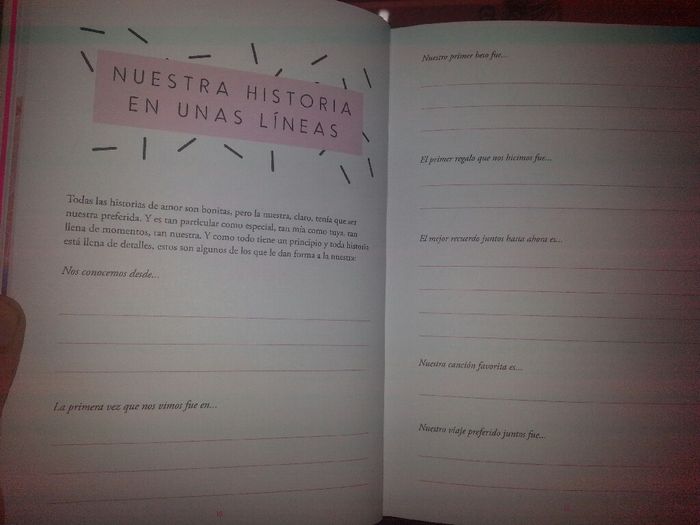 NUESTRA HISTORIA
EN UNAS LÍNEAS
Todas las historias de amor son bonitas, pero la nuestra, claro, tenía que ser
nuestra preferida. Y es tan particular como especial, tan mía como tuya, tan
llena de momentos, tan nuestra. Y como todo tiene un principio y toda historia
está llena de detalles, estos son algunos de los que le dan forma a la nuestra:
Nos conocemos desde...
La primera vez que nos vimos fue en...
Nuestro primer beso fue...
El primer regalo que nos hicimos fue...
El mejor recuerdo juntos hasta ahora es...
Nuestra canción favorita es...
Nuestro viaje preferido juntos fue...